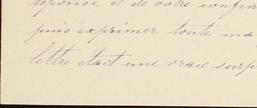 réponse et de votre confia
puis exprimer toute ma
lettre était une vraie surp